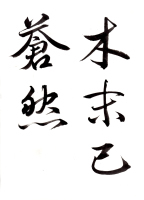 木末已
蒼然